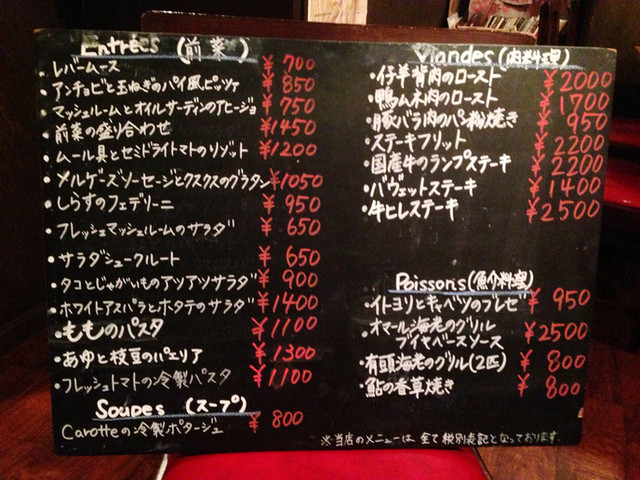 Entrées (前菜)
・レバームース ¥700
・アンチョビと玉ねぎのパイ風ピッツァ ¥850
・マッシュルームとオイルサーディンのアヒージョ ¥750
・前菜の盛り合わせ ¥1450
・ムール貝とセミドライトマトのリゾット ¥1200
・メルゲーズソーセージとクスクスのグラタン ¥1050
・しらすのフェデリーニ ¥950
・フレッシュマッシュルームのサラダ ¥650
・サラダシュークルート ¥650
・タコとじゃがいものアツアツサラダ ¥900
・ホワイトアスパラとホタテのサラダ ¥1400
・もものパスタ ¥1100
・あゆと枝豆のパエリア ¥1300
・フレッシュトマトの冷製パスタ ¥1100
Soupes (スープ)
Carotteの冷製ポタージュ ¥800
Viandes (肉料理)
・仔羊背肉のロースト ¥2000
・鴨ムネ肉のロースト ¥1700
・豚バラ肉のパン粉焼き ¥950
・ステークフリット ¥2200
・国産牛のランプステーキ ¥2200
・バヴェットステーキ ¥1400
・牛ヒレステーキ ¥2500
Poissons (魚介料理)
・イトヨリとキャベツのブレゼ ¥950
・オマール海老のグリル
ブイヤベースソース ¥2500
・有頭海老のグリル(2匹) ¥800
・鮎の香草焼き ¥800
※当店のメニューは全て税別表記となっております。